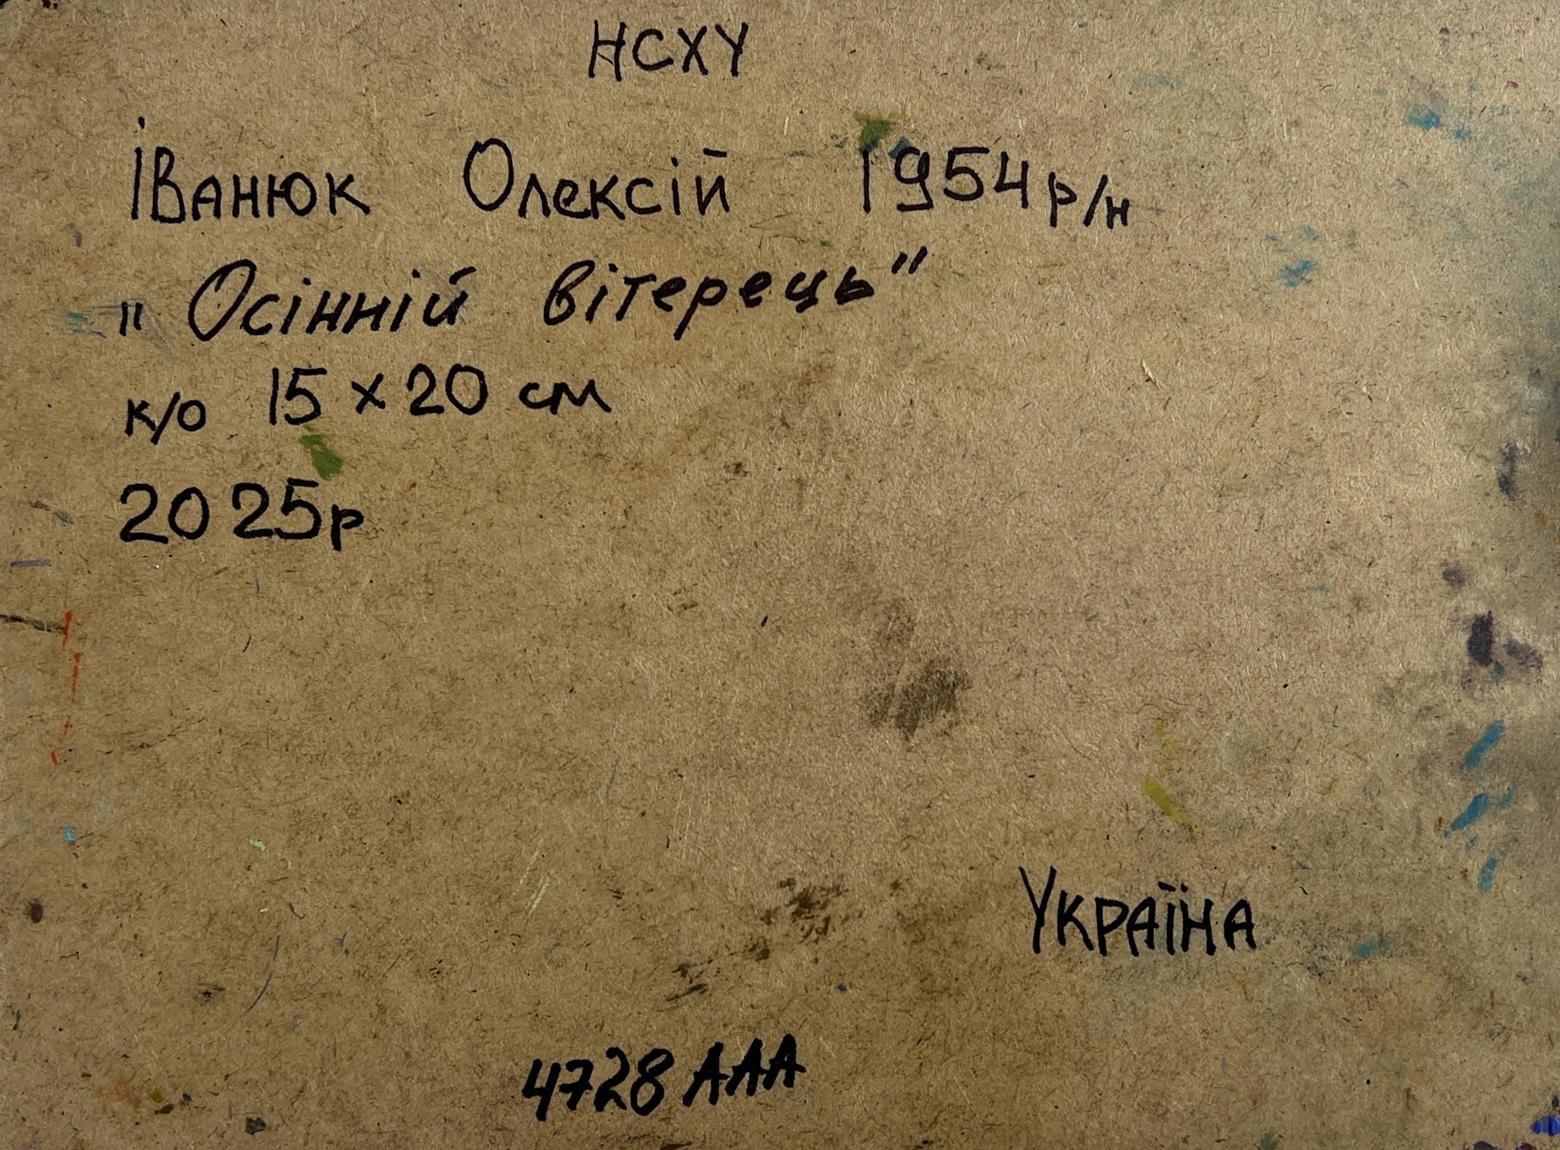 НСХУ
Іванюк Олексій 1954 р/н
„Осінній вітерець”
к/о 15 х 20 см
2025р
Україна
4728 ААА